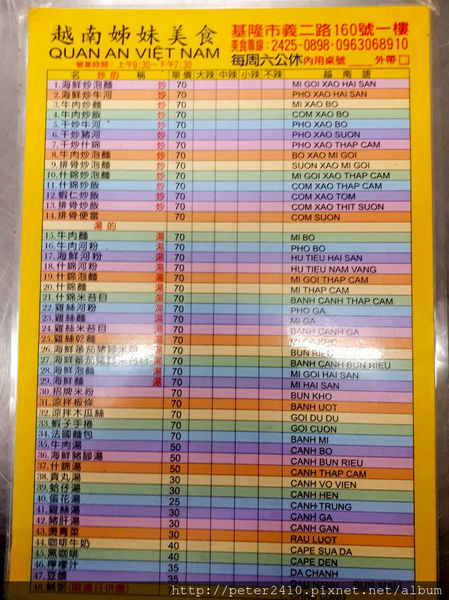 越南姊妹美食
QUAN AN VIỆT NAM
營業時間：上午9:30~下午7:30
基隆市義二路160號一樓
美食專線：2425-0898-0963068910
每周六公休 內用桌號 外帶
名 炒的 稱 單價 大辣 中辣 小辣 不辣 越南語
1.海鮮炒泡麵 炒 70 MI GOI XAO HAI SAN
2.海鮮炒牛河 炒 70 PHO XAO HAI SAN
3.牛肉炒麵 炒 70 MI XAO BO
4.牛肉炒飯 炒 70 COM XAO BO
5.干炒牛河 炒 70 PHO XAO BO
6.干炒豬河 炒 70 PHO XAO SUON
7.干炒什錦 炒 70 PHO XAO THAP CAM
8.牛肉炒泡麵 炒 70 BO XAO MI GOI
9.排骨炒泡麵 炒 70 SUON XAO MI GOI
10.什錦炒泡麵 炒 70 MI GOI XAO THAP CAM
11.什錦炒飯 炒 70 COM XAO THAP CAM
12.蝦仁炒飯 炒 70 COM XAO TOM
13.排骨炒飯 炒 70 COM XAO THIT SUON
14.排骨便當 70 COM SUON
湯的
15.牛肉麵 湯 70 MI BO
16.牛肉河粉 湯 70 PHO BO
17.海鮮河粉 湯 70 HU TIEU HAI SAN
18.什錦河粉 湯 70 HU TIEU NAM VANG
19.什錦泡麵 湯 70 MI GOI THAP CAM
20.什錦麵 湯 70 MI THAP CAM
21.什錦米苔目 湯 70 BANH CANH THAP CAM
22.雞絲河粉 湯 70 PHO GA
23.雞絲麵 湯 70 MI GA
24.雞絲米苔目 湯 70 BANH CANH GA
25.雞絲乾麵 70 MI GA KHO
26.海鮮番茄豬腳米粉 湯 70 BUN RIEU
27.海鮮番茄豬腳米苔目 湯 70 BANH CANH BUN RIEU
28.海鮮泡麵 湯 70 MI GOI HAI SAN
29.海鮮麵 湯 70 MI HAI SAN
30.招牌米粉 70 BUN KHO
31.涼拌板條 70 BANH UOT
32.涼拌木瓜絲 70 GOI DU DU
33.蝦子手捲 70 GOI CUON
34.法國麵包 70 BANH MI
35.牛肉湯 50 CANH BO
36.海鮮豬腳湯 50 CANH BUN RIEU
37.什錦湯 50 CANH THAP CAM
38.貢丸湯 30 CANH VO VIEN
39.蛤仔湯 30 CANH HEN
40.蛋花湯 25 CANH TRUNG
41.雞絲湯 30 CANH GA
42.豬肝湯 30 CANH GAN
43.燙青菜 30 RAU LUOT
44.咖啡牛奶 40 CAPE SUA DA
45.黑咖啡 40 CAPE DEN
46.檸檬汁 35 DA CHANH
47.豆漿 35
48.
http://peter2410.pixnet.net/album